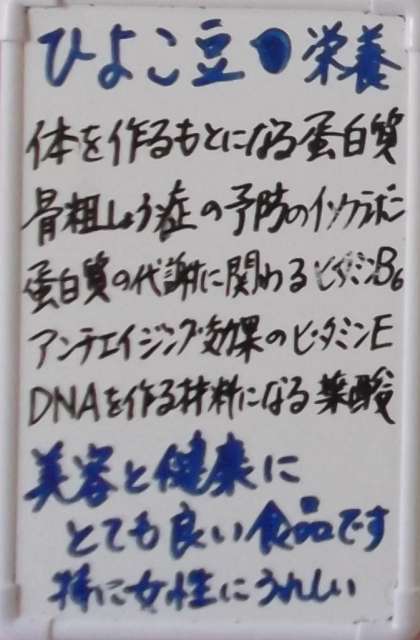 ひよこ豆の栄養
体を作るもとになる蛋白質
骨粗しょう症の予防のイソフラボン
蛋白質の代謝に関わるビタミンB6
アンチエイジング効果のビタミンE
DNAを作る材料になる葉酸
美容と健康に
とても良い食品です
特に女性にうれしい